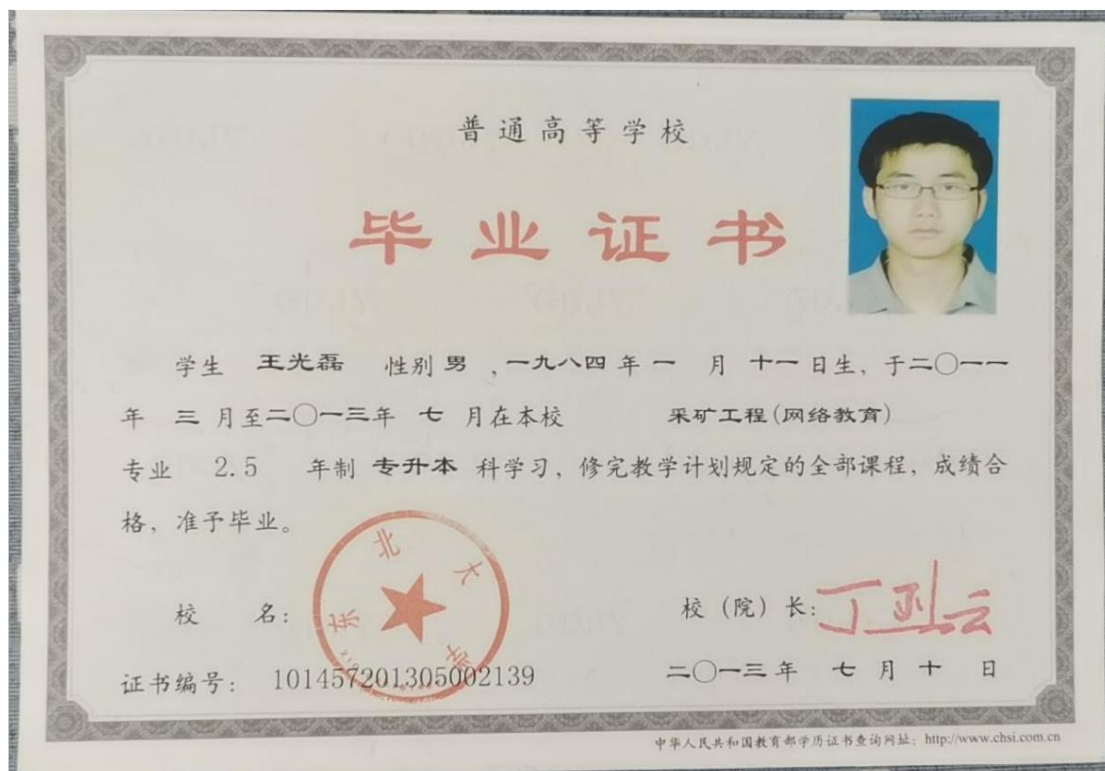 普通高等学校
毕业证书
学生 王光磊 性别 男 ,一九八四 年 一 月 十一 日生, 于二〇一一
年 三 月至二〇一三年 七 月在本校 采矿工程(网络教育)
专业 2.5 年制 专升本 科学习, 修完教学计划规定的全部课程, 成绩合
格, 准予毕业。
东北大学
校 名: 校 (院) 长: 丁烈云
证书编号: 101457201305002139 二〇一三年 七 月 十 日
中华人民共和国教育部学历证书查询网址: http://www.chsi.com.cn